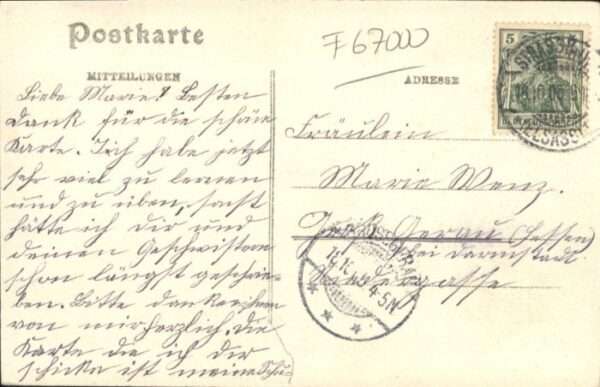 Postkarte
F 67000
MITTEILUNGEN
ADRESSE
5
STRASSBURG
ELSASS
Liebe Marie! Besten
Dank für die schöne
Karte. Ich habe jetzt
sehr viel zu lernen
und zu üben, sonst
hätte ich Dir und
deinen Geschwistern
schon längst geschrie-
ben. Bitte danke ihnen
von mir herzlich. Die
Karte die ich dir
schicke ist meine
Fräulein
Marie Wenz.
Groß Gerau (Hessen)
bei Darmstadt
4-5N